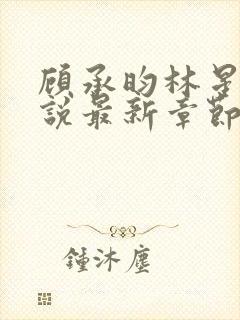 顾承昀林星
說最新章節
鍾沐塵